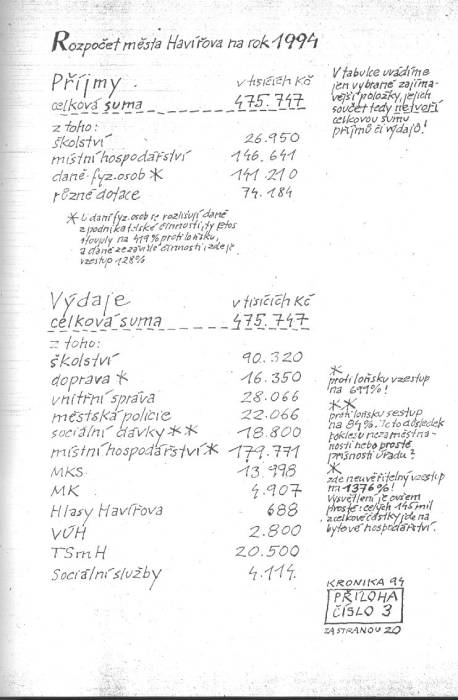 Rozpočet města Havířova na rok 1994
Příjmy v tisících Kč
celková suma 475.747
z toho:
školství 26.950
místní hospodářství 146.641
daně fyz. osob * 141 210
různé dotace 74.184
* U daní fyz. osob se rozlišují daně
z podnikatelské činnosti, ty letos
stouply na 419% proti loňsku,
a daně ze závislé činnosti, zde je
vzestup 128%
V tabulce uvádíme
jen vybrané zajíma-
vější položky, jejich
součet tedy netvoří
celkovou sumu
příjmů či výdajů!
Výdaje v tisících Kč
celková suma 475.747
z toho:
školství 90.320
doprava * 16.350
vnitřní správa 28.066
městská policie 22.066
sociální dávky ** 18.800
místní hospodářství * 179.771
MKS 13.998
MK 4.907
Hlasy Havířova 688
VÚH 2.800
TSmH 20.500
Sociální služby 4.114.
*
proti loňsku vzestup
na 691%!
**
proti loňsku sestup
na 84%. Je to důsledek
poklesu nezaměstna-
nosti nebo prostě
přísnosti úřadu?
*
zde neuvěřitelný vzestup
na 1376%!
Vysvětlení je ovšem
prosté: celých 145 mil
z celkové částky jde na
bytové hospodářství.
KRONIKA 94
PŘÍLOHA
ČÍSLO 3
ZA STRANOU 20